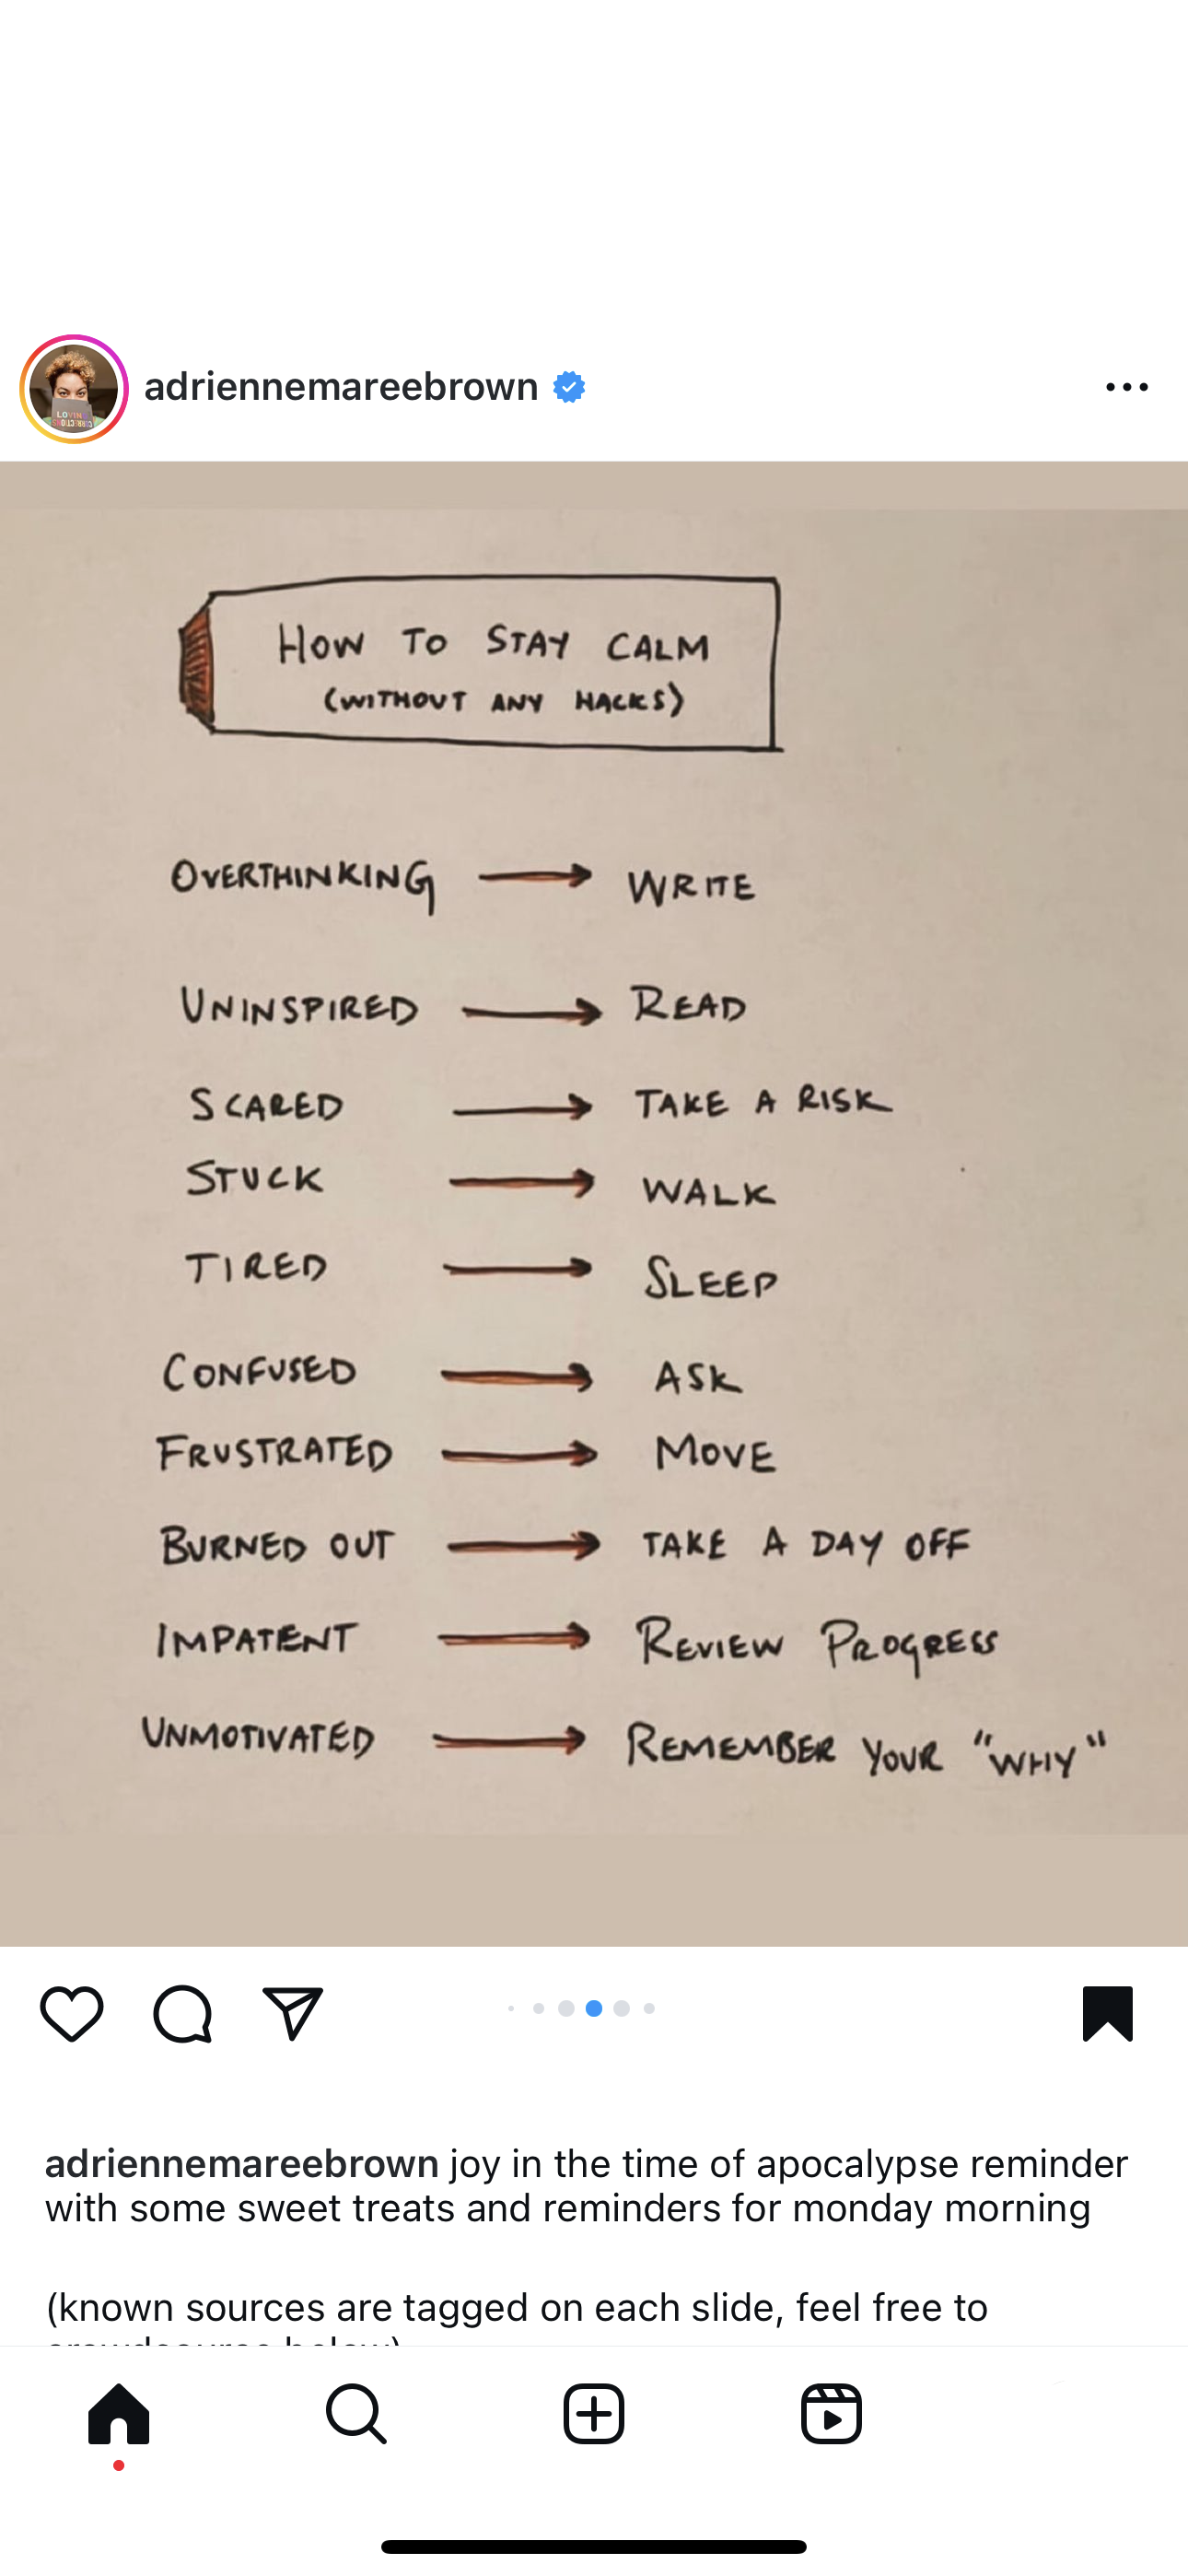 adriennemareebrown
LOVIN
HOW TO STAY CALM
(WITHOUT ANY HACKS)
OVERTHINKING → WRITE
UNINSPIRED → READ
SCARED → TAKE A RISK
STUCK → WALK
TIRED → SLEEP
CONFUSED → ASK
FRUSTRATED → MOVE
BURNED OUT → TAKE A DAY OFF
IMPATIENT → REVIEW PROGRESS
UNMOTIVATED → REMEMBER YOUR "WHY"
adriennemareebrown joy in the time of apocalypse reminder
with some sweet treats and reminders for monday morning
(known sources are tagged on each slide, feel free to